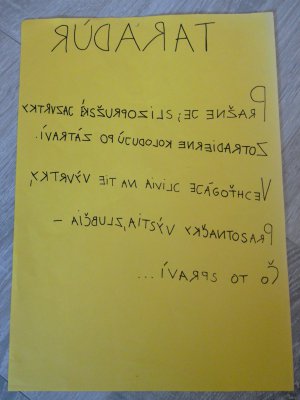 TARADÚR
PRAŽNE JE; SLIZOPRUŽSKÉ JAZVRTKY
ZOTRADIERNE KOLODUJÚ PO ZÁTRAVÍ.
VECHŤOGÁJE JLIVIA NA TIE VÝVRTKY,
PRASOTNAČKY VÝSTIA, ZLUBČIA –
ČO TO SPRAVÍ...